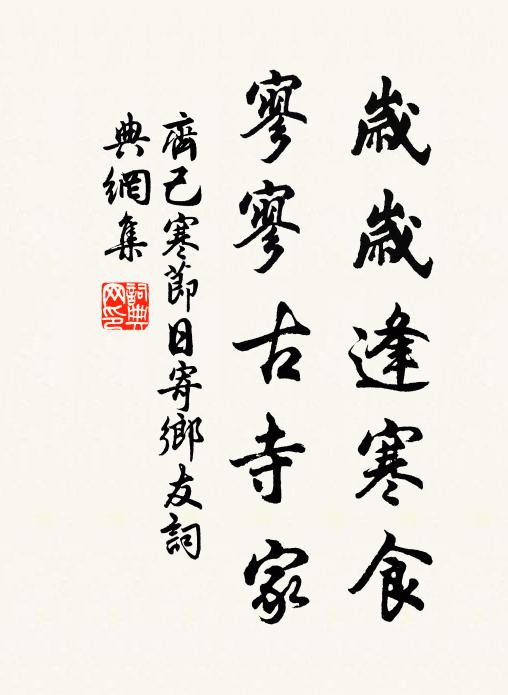 歲歲逢寒食
寥寥古寺家
齊己寒節日寄鄉友詞
典網集
詞典网印